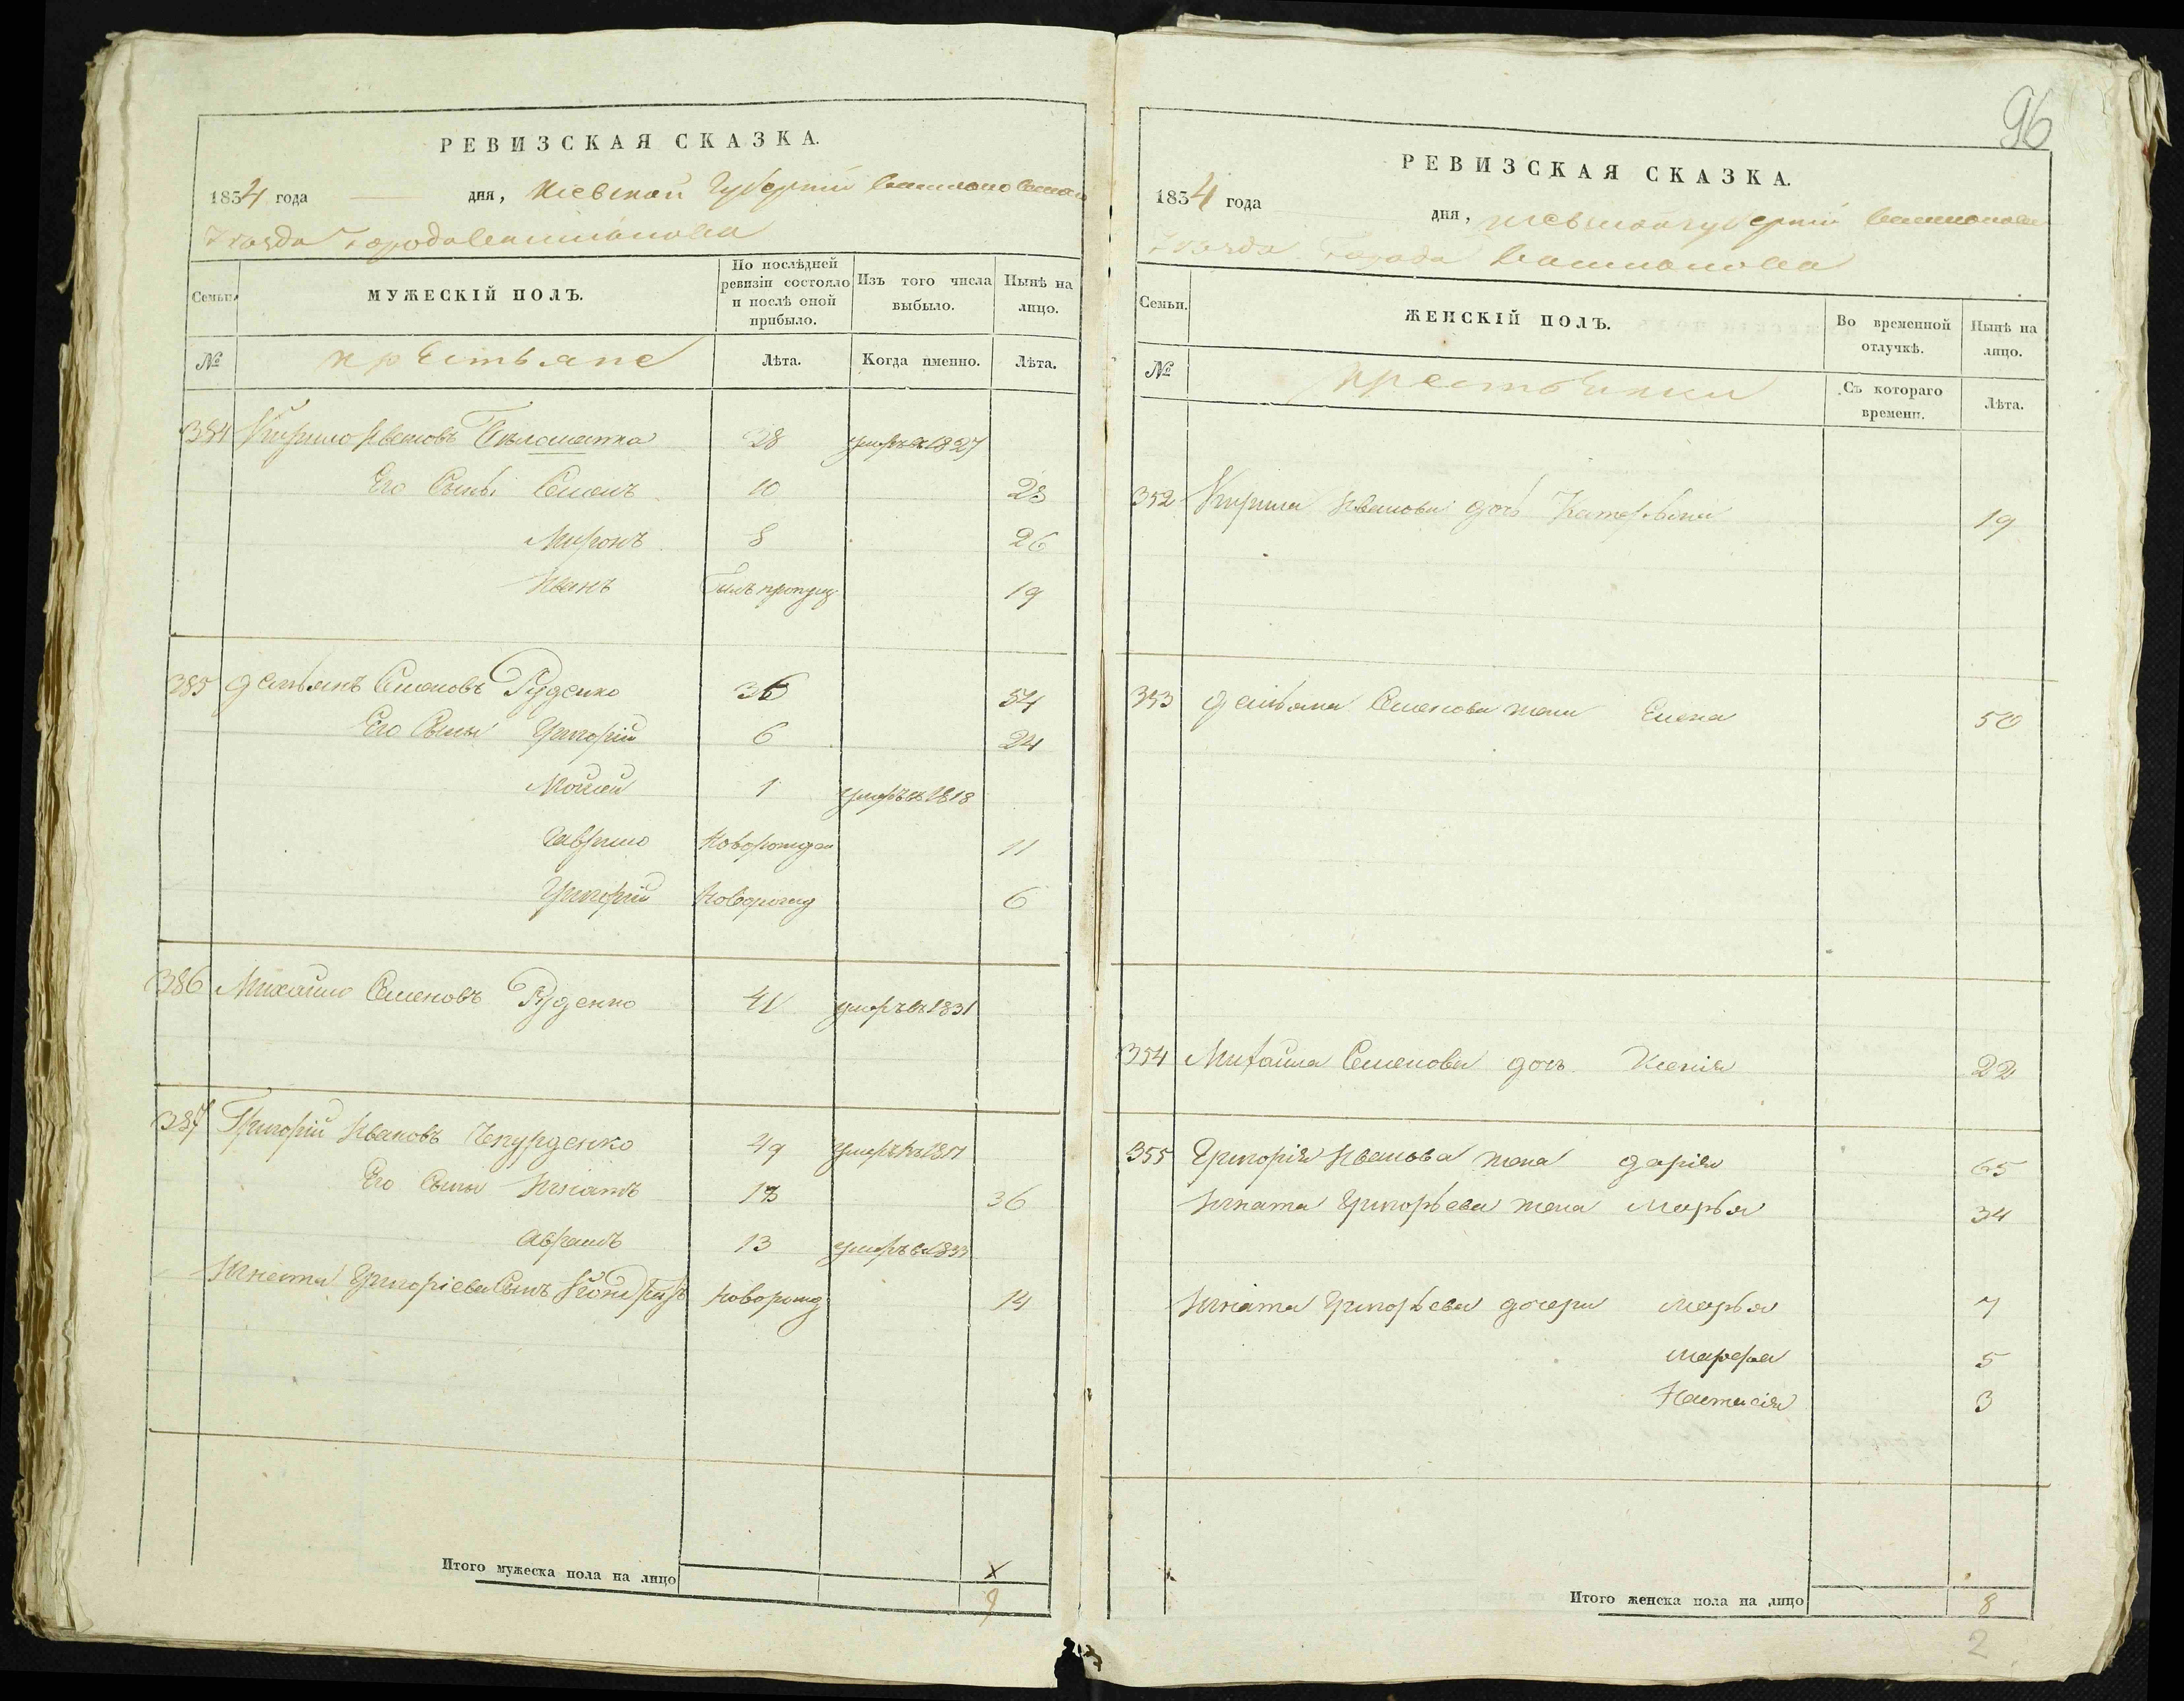 96
РЕВИЗСКАЯ СКАЗКА.
1834 года дня, Кіевской Губерніи
Уезда Города
Семьи.
МУЖЕСКІЙ ПОЛЪ.
По послѣдней ревизіи состояло и послѣ оной прибыло.
Изъ того числа выбыло.
Нынѣ на лицо.
№ крестьяне Лѣта. Когда именно. Лѣта.
384 Кирило Ивановъ 38 умеръ в 1827
Его Сыны Семенъ 10 28
Миронъ 8 26
Иванъ Былъ пропущ. 19
385 Демьянъ Семеновъ Руденко 36 54
Его Сыны Григорій 6 24
Мойсей 1 умеръ в 1818
Гаврило Новорожден 11
Григорій Новорожд 6
386 Михайло Семеновъ Руденко 41 умеръ въ 1831
387 Григорій Ивановъ 49 умеръ въ
Его Сыны Игнатъ 18 36
Абрамъ 13 умеръ в 1833
Игната Григоріева Сынъ Новорожд 14
Итого мужеска пола на лицо 9
РЕВИЗСКАЯ СКАЗКА.
1834 года дня, Кіевской губерніи
Уезда Города
Семьи.
ЖЕНСКІЙ ПОЛЪ.
Во временной отлучкѣ.
Нынѣ на лицо.
№ крестьянки Съ котораго времени. Лѣта.
352 Кирила Иванова дочь Катерина 19
353 Демьяна Семенова жена Елена 50
354 Михайла Семенова дочь Ксенія 22
355 Григорія Иванова жена Дарія 65
Игната Григорьева жена Марья 34
Игната Григорьева дочери Марья 7
Марфа 5
Настасія 3
Итого женска пола на лицо 8
2